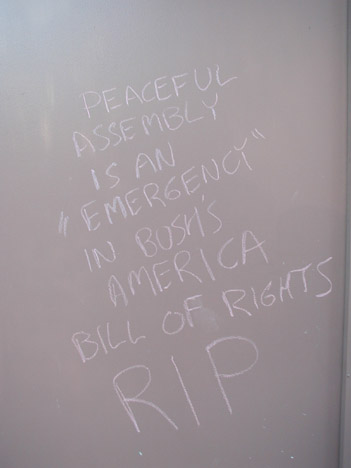 PEACEFUL
ASSEMBLY
IS AN
"EMERGENCY"
IN BUSH'S
AMERICA
BILL OF RIGHTS
RIP